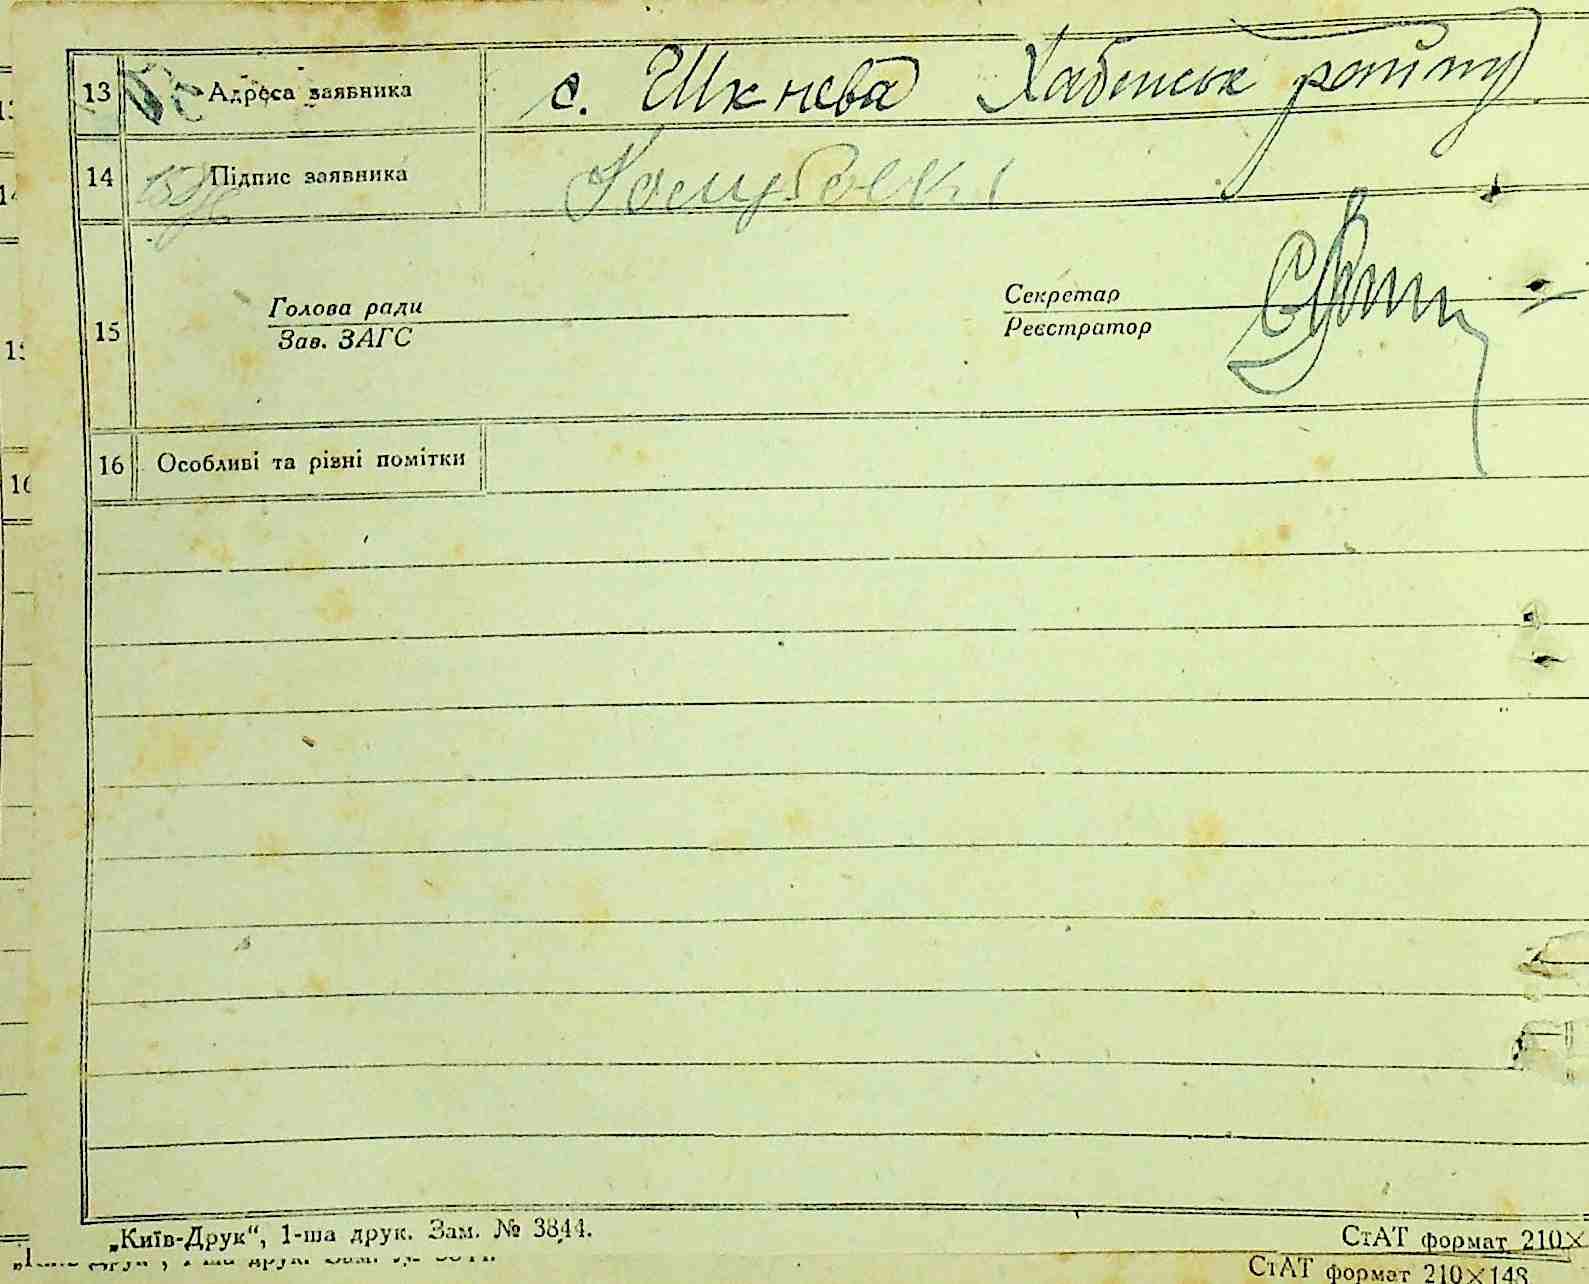 13 Адреса заявника с. Шкнева Хабенськ району
14 Підпис заявника
15 Голова ради Секретар
Зав. ЗАГС Реєстратор
16 Особливі та різні помітки
„Київ-Друк“, 1-ша друк. Зам. № 3844.
СтАТ формат 210×
СтАТ формат 210×148